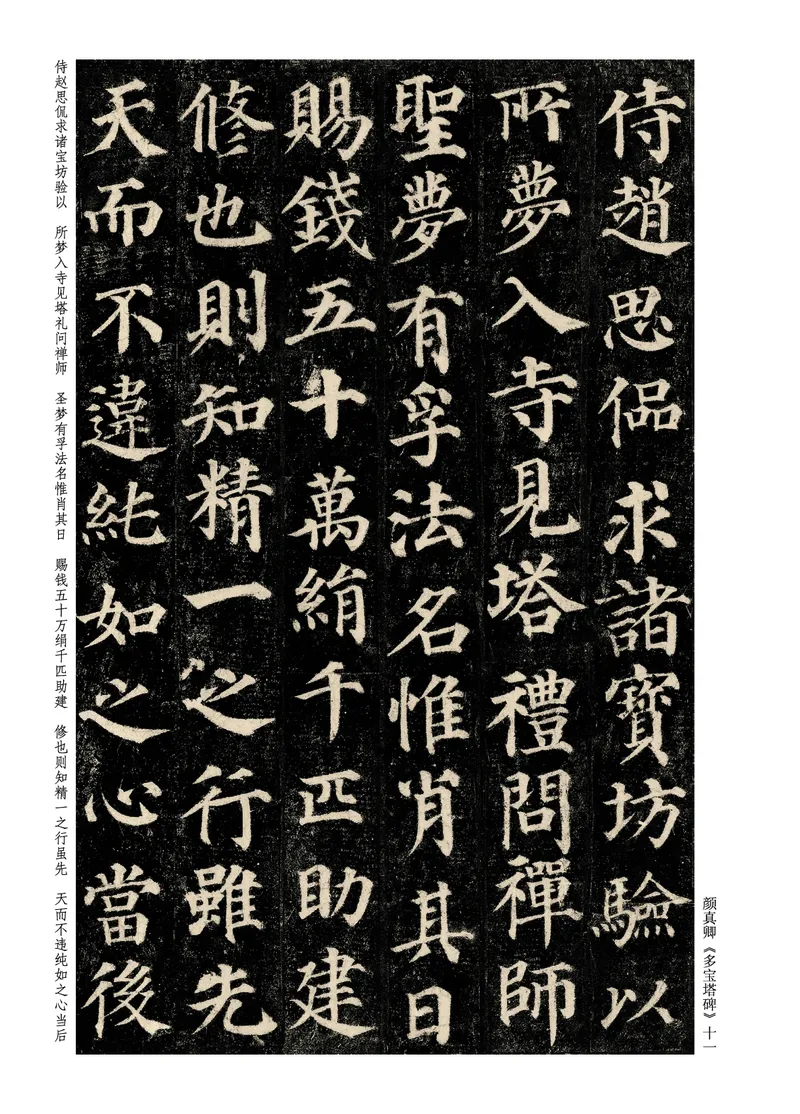 侍趙思侃求諸寶坊驗以
所夢入寺見塔禮問禪師
聖夢有孚法名惟肖其日
賜錢五十萬絹千匹助建
修也則知精一之行雖先
天而不違純如之心當後
侍赵思侃求诸宝坊验以 所梦入寺见塔礼问禅师 圣梦有孚法名惟肖其日 赐钱五十万绢千匹助建 修也则知精一之行虽先 天而不违纯如之心当后
颜真卿《多宝塔碑》十一